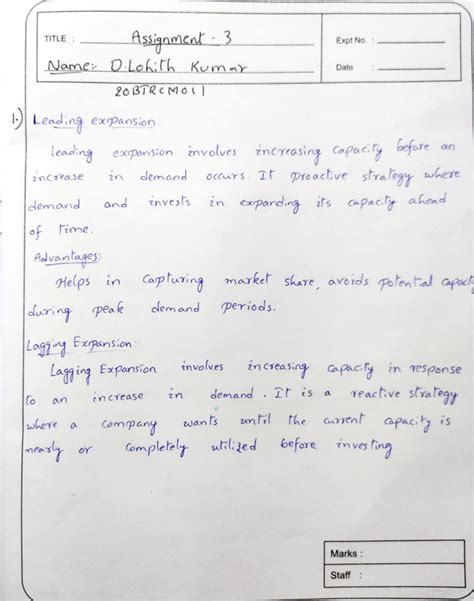 TITLE : Assignment - 3
Expt No. :
Name:- D.Lohith Kumar
Date :
20BTRCM011
1.) Leading expansion :-
leading expansion involves increasing capacity before an
increase in demand occurs. It proactive strategy where
demand and invests in expanding its capacity ahead
of time.
Advantages:-
Helps in capturing market share, avoids potential capacity
during peak demand periods.
Lagging Expansion :-
Lagging Expansion involves increasing capacity in response
to an increase in demand. It is a reactive strategy
where a company wants until the current capacity is
nearly or completely utilized before investing.
Marks :
Staff :